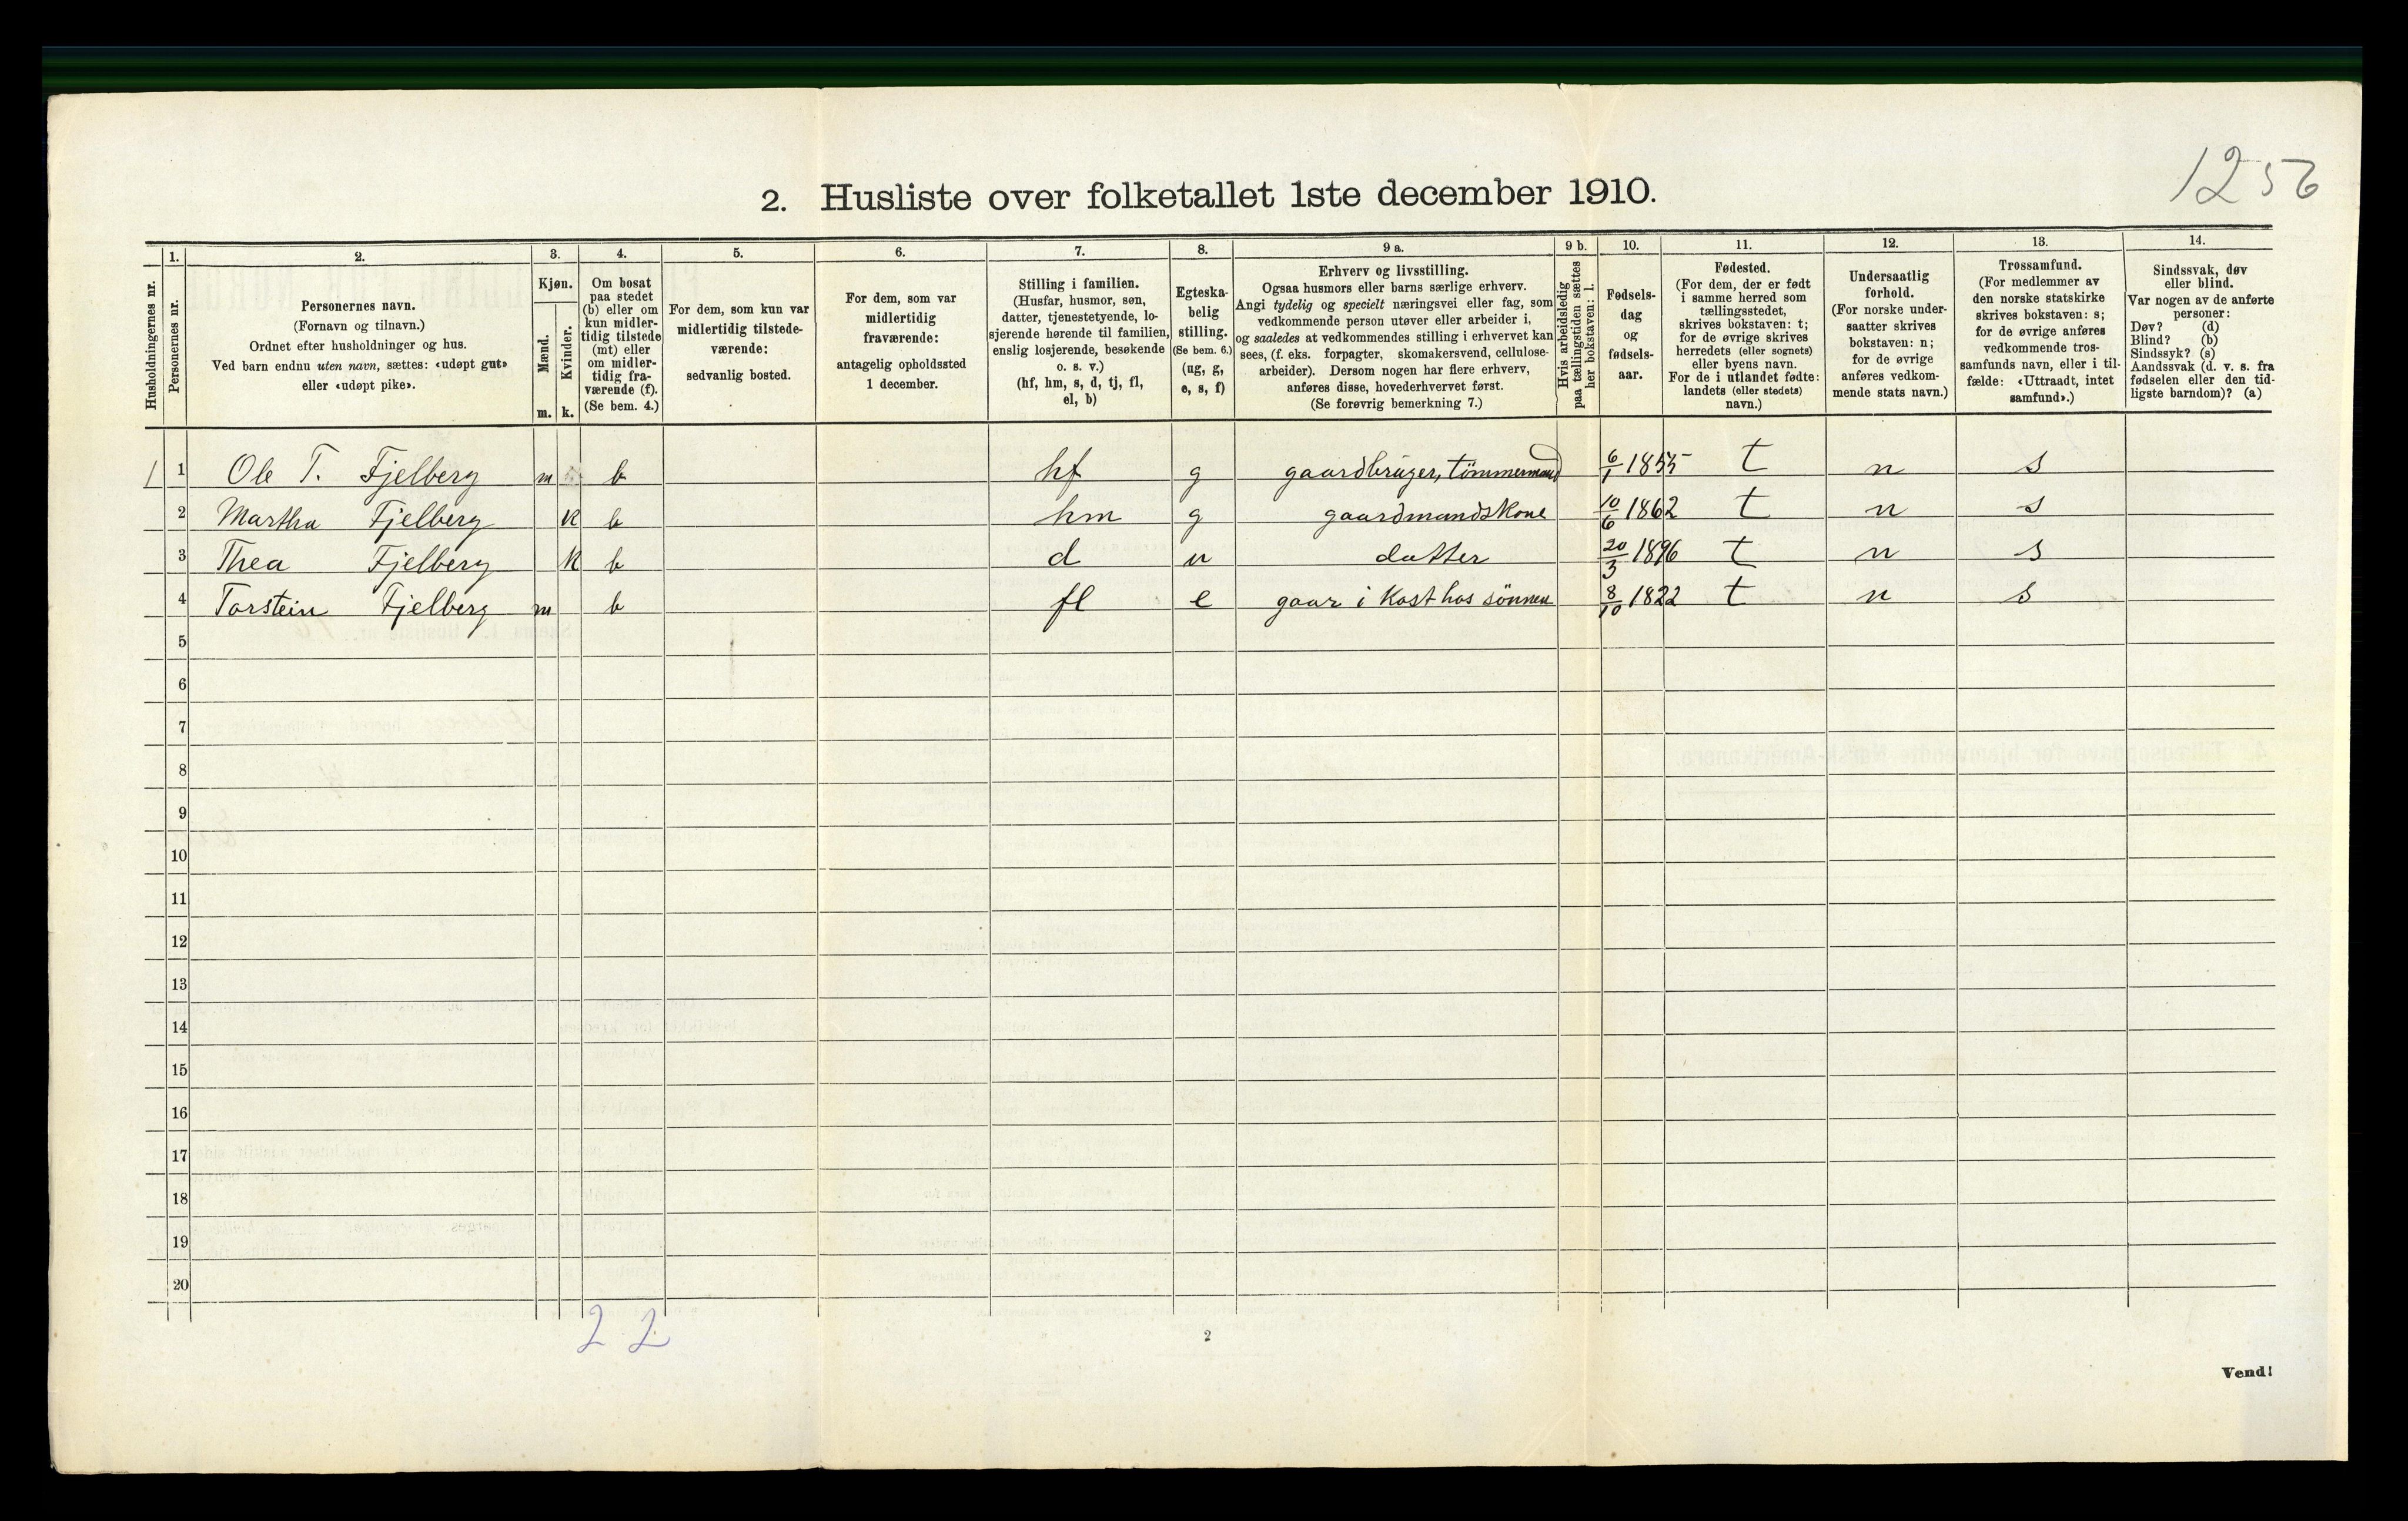 1256
2. Husliste over folketallet 1ste december 1910.
Husholdningernes nr.
1. Personernes nr.
2. Personernes navn. (Fornavn og tilnavn.) Ordnet efter husholdninger og hus. Ved barn endnu uten navn, sættes: «udøpt gut» eller «udøpt pike».
3. Kjøn. Mænd. m. Kvinder. k.
4. Om bosat paa stedet (b) eller om kun midlertidig tilstede (mt) eller om midlertidig fraværende (f). (Se bem. 4.)
5. For dem, som kun var midlertidig tilstedeværende: sedvanlig bosted.
6. For dem, som var midlertidig fraværende: antagelig opholdssted 1 december.
7. Stilling i familien. (Husfar, husmor, søn, datter, tjenestetyende, losjerende hørende til familien, enslig losjerende, besøkende o. s. v.) (hf, hm, s, d, tj, fl, el, b)
8. Egteskabelig stilling. (Se bem. 6.) (ug, g, e, s, f)
9 a. Erhverv og livsstilling. Ogsaa husmors eller barns særlige erhverv. Angi tydelig og specielt næringsvei eller fag, som vedkommende person utøver eller arbeider i, og saaledes at vedkommendes stilling i erhvervet kan sees, (f. eks. forpagter, skomakersvend, cellulosearbeider). Dersom nogen har flere erhverv, anføres disse, hovederhvervet først. (Se forøvrig bemerkning 7.)
9 b. Hvis arbeidsledig paa tællingstiden sættes her bokstaven: l.
10. Fødselsdag og fødselsaar.
11. Fødested. (For dem, der er født i samme herred som tællingsstedet, skrives bokstaven: t; for de øvrige skrives herredets (eller sognets) eller byens navn. For de i utlandet fødte: landets (eller stedets) navn.)
12. Undersaatlig forhold. (For norske undersaatter skrives bokstaven: n; for de øvrige anføres vedkommende stats navn.)
13. Trossamfund. (For medlemmer av den norske statskirke skrives bokstaven: s; for de øvrige anføres vedkommende trossamfunds navn, eller i tilfælde: «Uttraadt, intet samfund».)
14. Sindssvak, døv eller blind. Var nogen av de anførte personer: Døv? (d) Blind? (b) Sindssyk? (s) Aandssvak (d. v. s. fra fødselen eller den tidligste barndom)? (a)
1 1 Ole T. Fjelberg m b hf g gaardbruger, tömmermand 6/1 1855 t n s
2 Martha Fjelberg k b hm g gaardmandskone 10/6 1862 t n s
3 Thea Fjelberg k b d u datter 20/3 1896 t n s
4 Torstein Fjelberg m b fl e gaar i Kost hos sönnen 8/10 1822 t n s
5
6
7
8
9
10
11
12
13
14
15
16
17
18
19
20
2 2
2
Vend!